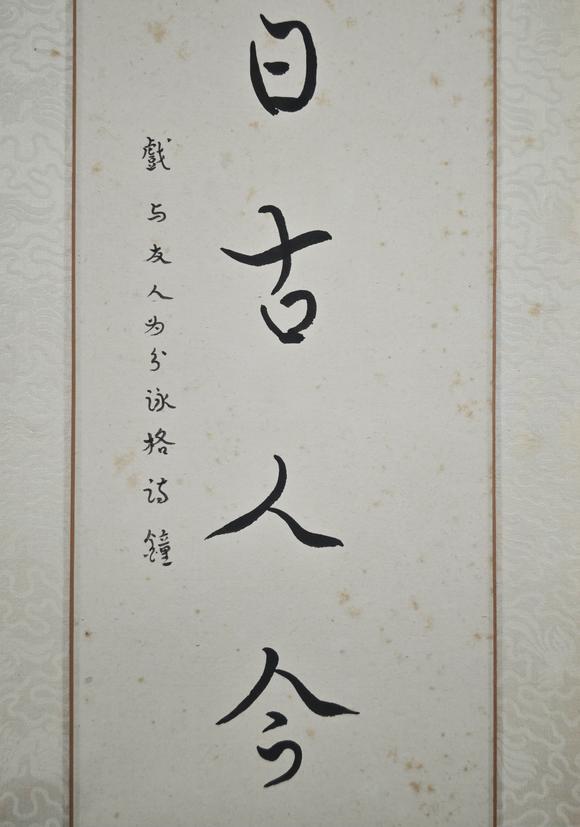 日古人今
戲与友人为分詠格詩鐘